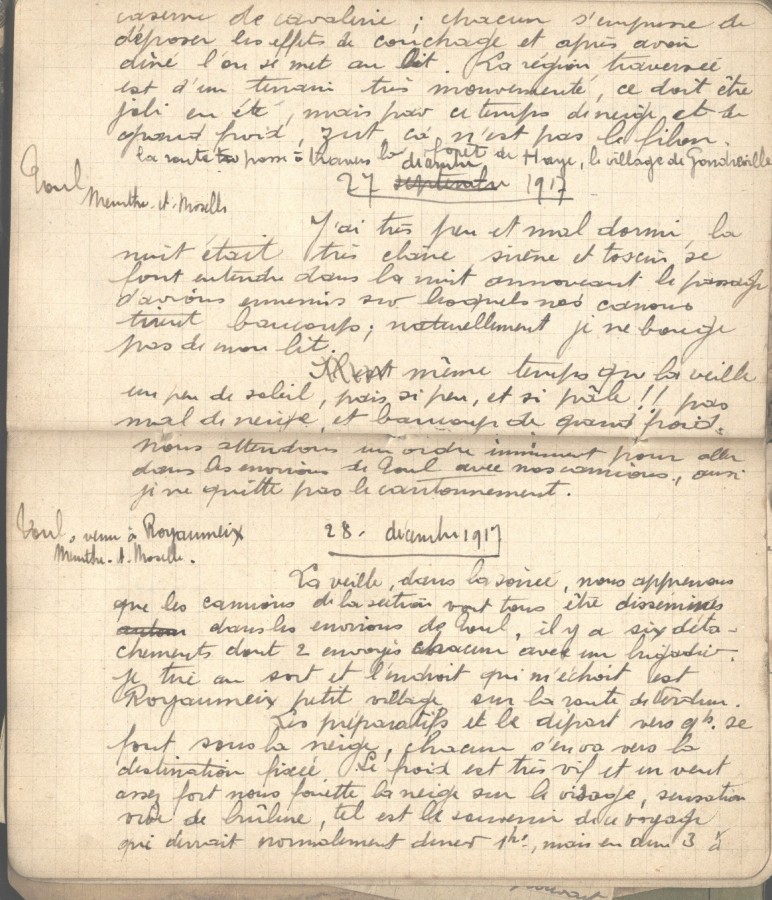 caserne de cavalerie ; chacun s'empresse de
déposer les effets de couchage et après avoir
diné l'on se met au lit. La région traversée
est d'un terrain très mouvementé, ce doit être
joli en été, mais par ce temps de neige et de
grand froid, zut ça n'est pas le filon.
la route passe à travers la forêt de Haye, le village de Gondreville
Toul
Meurthe-et-Moselle
27 septembre décembre 1917
J'ai très peu et mal dormi, la
nuit était très claire, sirène et tocsin, se
font entendre dans la nuit annonçant le passage
d'avions ennemis sur lesquels nos canons
tirent beaucoup ; naturellement je ne bouge
pas de mon lit.
même temps que la veille
un peu de soleil, mais si peu, et si pâle !! pas
mal de neige, et beaucoup de grand froid.
nous attendons un ordre imminent pour aller
dans les environs de Toul avec nos camions, aussi
je ne quitte pas le cantonnement.
Toul, venu à Royaumeix
Meurthe-et-Moselle.
28. décembre 1917
La veille, dans la soirée, nous apprenons
que les camions de la section vont tous être disséminés
dans les environs de Toul, il y a six déta-
chements dont 2 envoyés chacun avec un brigadier.
Je tire au sort et l'endroit qui m'échoit est
Royaumeix petit village sur la route de Verdun.
Les préparatifs et le départ vers 9h. se
font sous la neige, chacun s'en va vers la
destination fixée. Le froid est très vif et un vent
assez fort nous fouette la neige sur le visage, sensation
de brûlure, tel est le souvenir de ce voyage
qui devrait normalement durer 1h, mais en dure 3 à